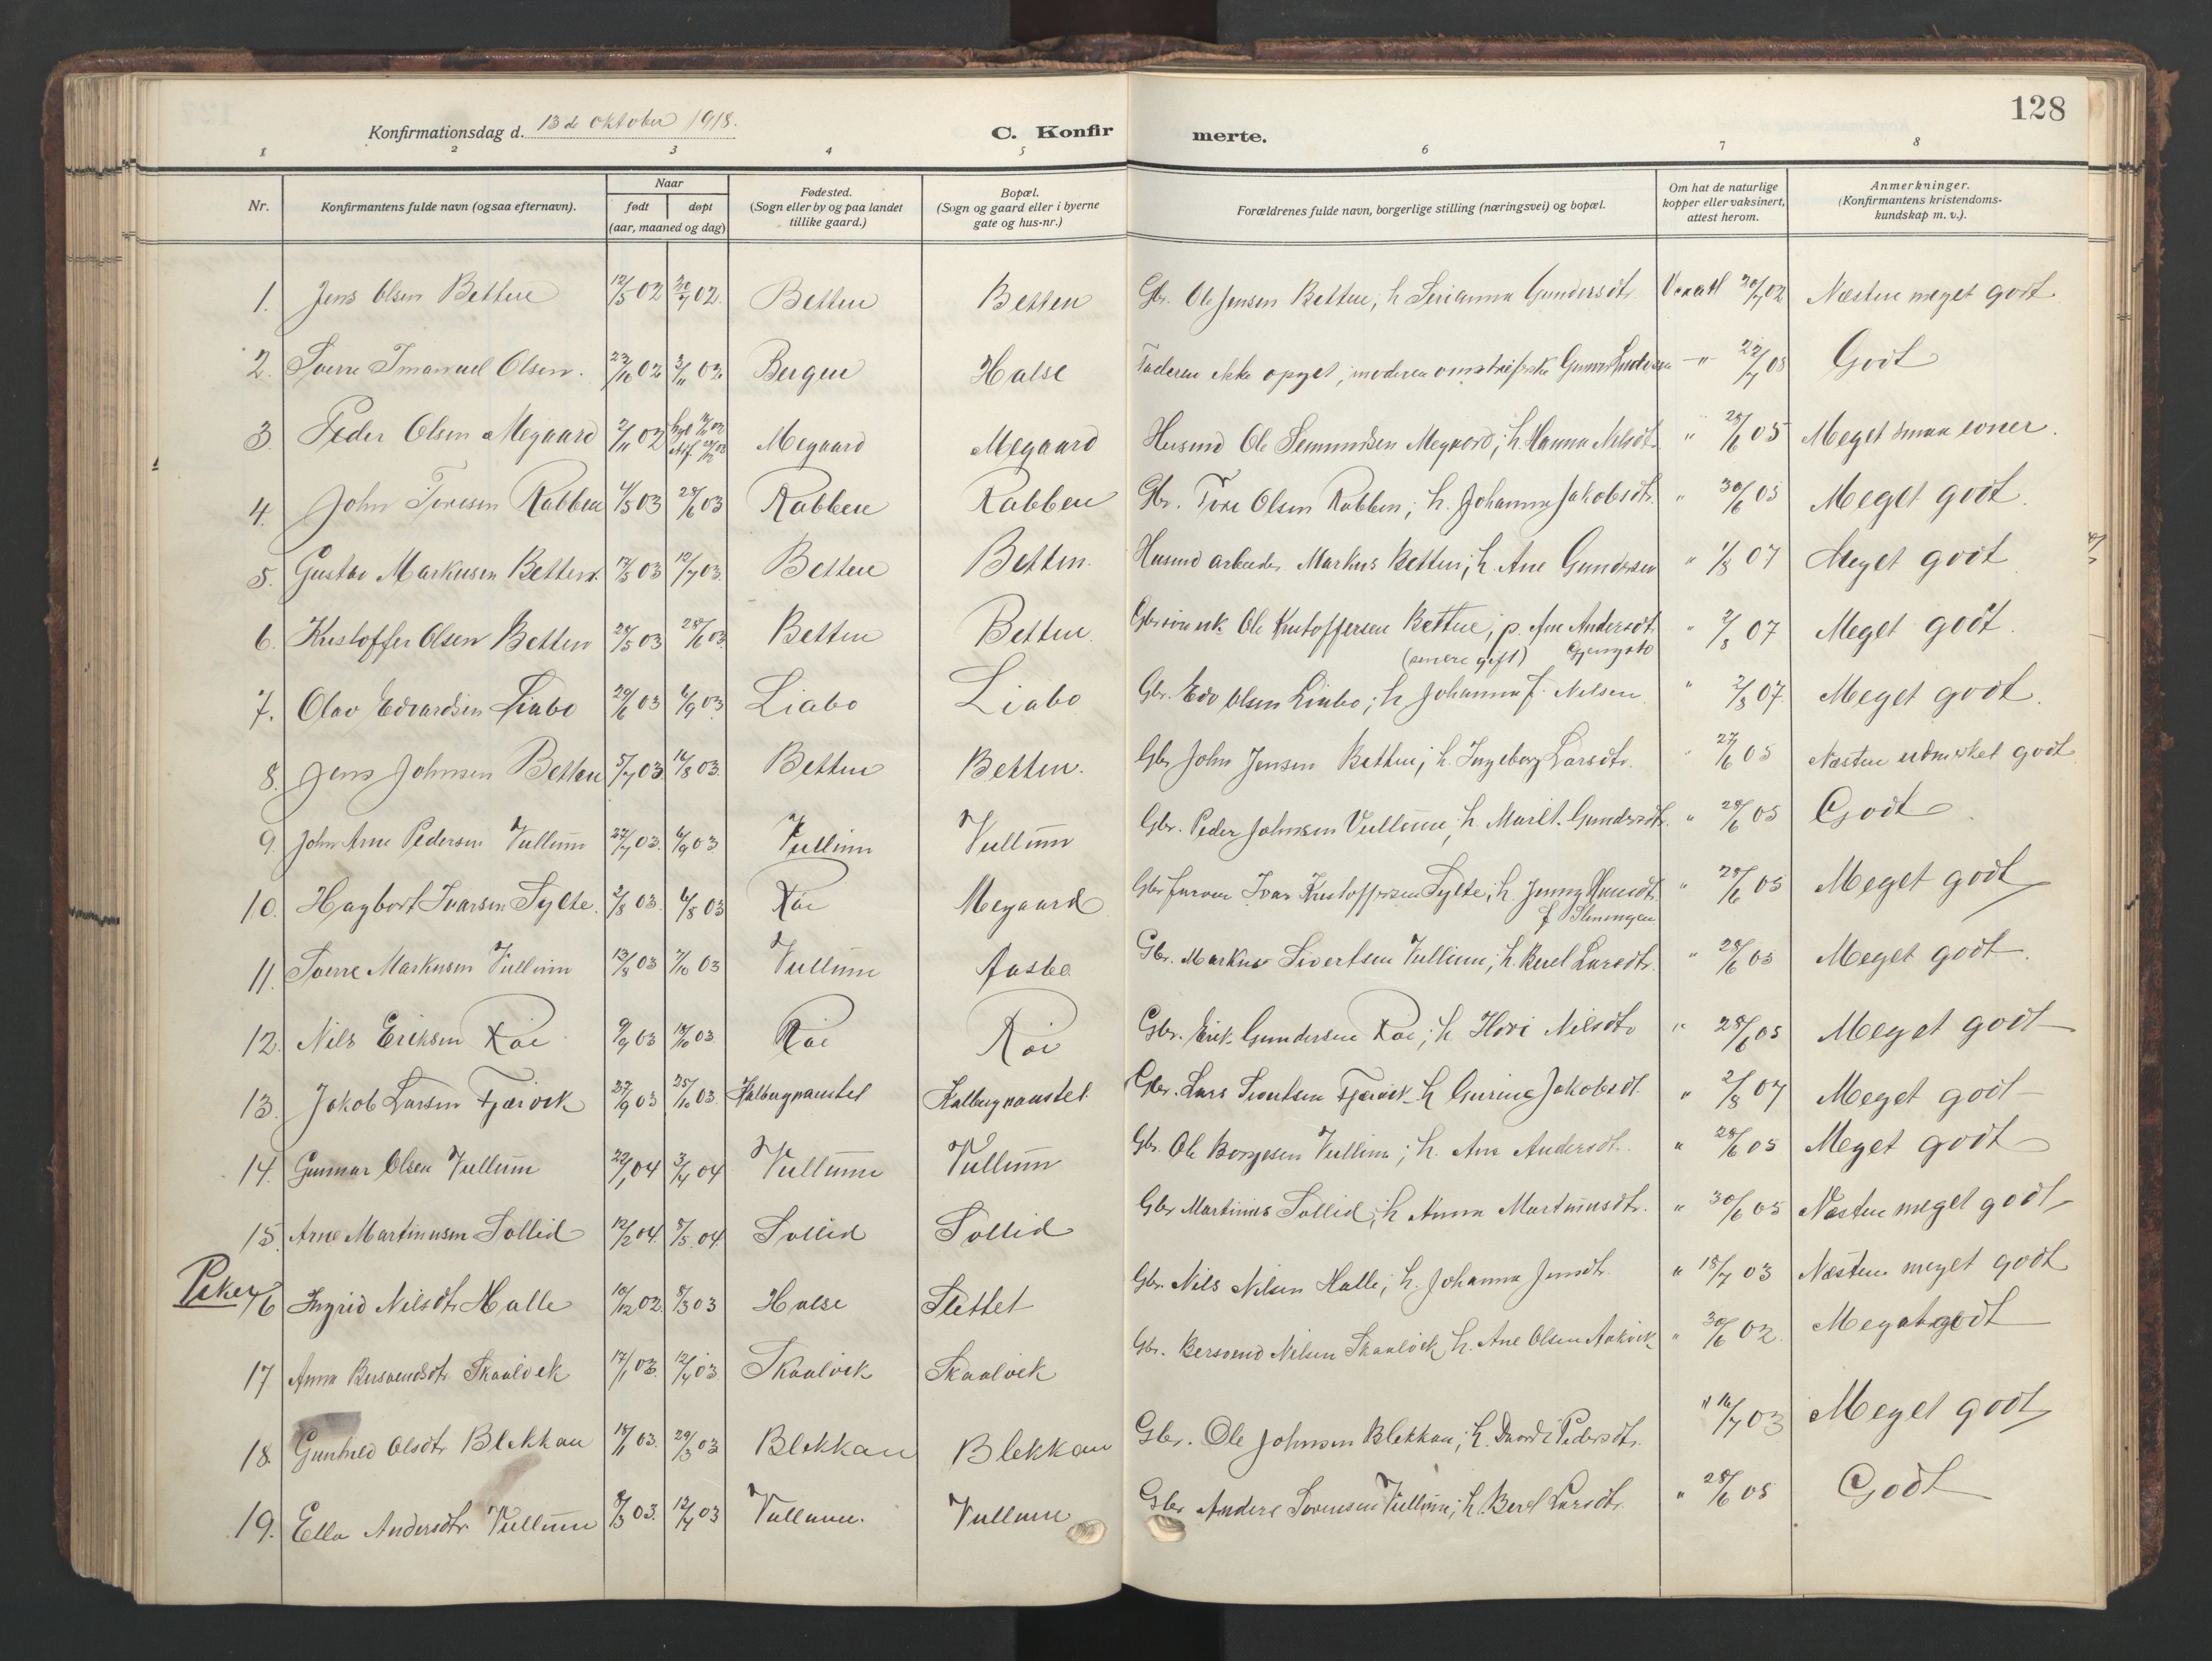 128
Konfirmationsdag d. 13de oktober 1918.
C. Konfirmerte.
1 2 3 4 5 6 7 8
Nr.
Konfirmantens fulde navn (ogsaa efternavn).
Naar
født
døpt
(aar, maaned og dag)
Fødested.
(Sogn eller by og paa landet
tillike gaard.)
Bopæl.
(Sogn og gaard eller i byerne
gate og hus-nr.)
Forældrenes fulde navn, borgerlige stilling (næringsvei) og bopæl.
Om hat de naturlige
kopper eller vaksinert,
attest herom.
Anmerkninger.
(Konfirmantens kristendoms-
kundskap m. v.).
1. Jens Olsen Betten 12/5 02 20/7 02. Betten Betten Gbr. Ole Jensen Betten; h. Gundersdtr. 30/7 02 Næsten meget godt
2. Sverre Imanuel Olsen. 23/10 02 3/11 02. Bergen Halse Faderen ikke opgit; moderen -"- 22/7 08 Godt
3. Peder Olsen Megaard 2/11 02 Megaard Megaard Husmd Ole Megaard; h. Hanna Nilsdt. " 28/6 05 Meget smaa evner.
4. John Toresen Rabben 4/5 03 28/6 03 Rabben Rabben Gbr. Tore Olsen Rabben; h. Johanna Jakobsdtr. " 30/6 05 Meget godt.
5. Gustav Markusen Betten. 17/5 03 12/7 03. Betten Betten. Husmd arbeider Markus Betten; h. Ane Gundersen " 1/8 07 Meget godt
6. Kristoffer Olsen Betten 28/5 03 28/6 03. Betten Betten. Ole Kristoffersen Betten; p. Ane Andersdt. " 2/8 07 Meget godt.
(senere gift) Gjengstø
7. Olav Edvardsen Liabø 29/6 03 6/9 03. Liabø Liabø Gbr. Edv Olsen Liabø; h. Johanna f. Nelsen " 2/8 07. Meget godt.
8. Jens Johnsen Betten 5/7 03. 16/8 03. Betten Betten. Gbr John Jensen Betten; h. Ingeborg Larsdtr. " 27/6 05 Næsten udmerket godt
9. John Arne Pedersen Vullum 27/7 03. 6/9 03 Vullum Vullum Gbr. Peder Johnsen Vullum; h. Marit Gundersdtr. " 28/6 05 Godt
10. Hagbart Ivarsen Sylte. 2/8 03. 6/8 03 Røe Megaard Ivar Kristoffersen Sylte; h. Jenny " 28/6 05 Meget godt
11. Sverre Markusen Vullum 13/8 03 7/10 03 Vullum Aasbø Gbr. Markus Sivertsen Vullum; h. Beret Larsdtr. " 28/6 05 Meget godt.
12. Nils Eriksen Røe 9/9 03 18/10 03. Røe Røe Gbr. Erik Gundersen Røe; h. Nilsdtr " 28/6 05 Meget godt
13. Jakob Larsen Fjærvik 27/9 03 25/10 03. Kalbugnaustet Kalbugnaustet. Gbr. Lars Sivertsen Fjærvik h. Gurine Jakobsdt. " 2/8 07 Meget godt
14. Gunnar Olsen Vullum 22/1 04 3/4 04 Vullum Vullum Gbr. Ole Børgesen Vullum; h. Ane Andersdt. " 28/6 05 Meget godt
15. Arne Martinusen Sollid 12/2 04. 8/5 04 Sollid Sollid Gbr Martinus Sollid; h. Anna Martinusdtr. " 30/6 05 Næsten meget godt
Piker
16 Ingrid Nilsdtr Halle 10/12 02. 8/3 03 Halse Slettet Gbr. Nils Nilsen Halle; h. Johanna Jensdtr. " 18/7 03 Næsten meget godt
17 Anna Bersvendsdtr Skaalvik 17/1 03. 12/4 03. Skaalvik Skaalvik Gbr. Bersvend Nilsen Skaalvik h. Ane Olsen Aakvik " 30/6 02. Meget godt
18. Gunhild Olsdtr Blekkan 18/1 03. 29/3 03 Blekkan Blekkan Gbr. Ole Johnsen Blekkan; h. Pedersdtr. " 16/7 03 Meget godt
19. Ella Andersdtr. Vullum 8/3 03. 12/4 03 Vullum. Vullum Gbr Anders Sørensen Vullum; h. Beret Larsdtr " 28/6 05 Godt